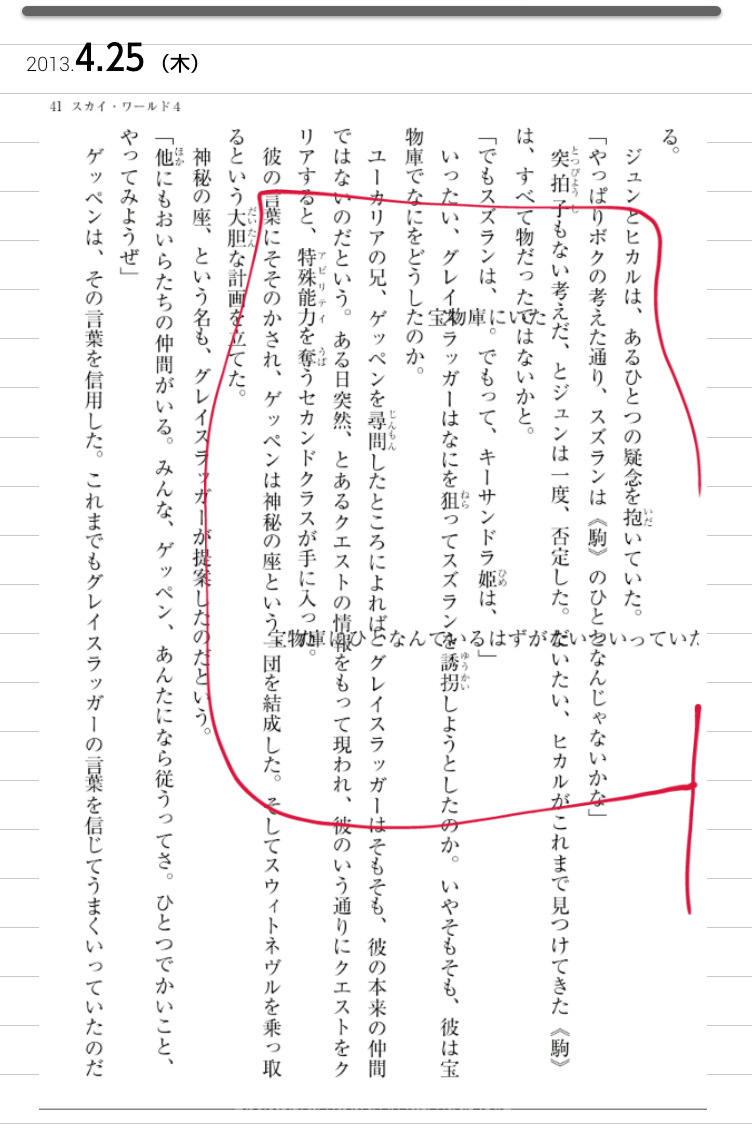 2013.4.25（木）
41 スカイ・ワールド4
る。
ジュンとヒカルは、あるひとつの疑念を抱いていた。
「やっぱりボクの考えた通り、スズランは《駒》のひとつなんじゃないかな」
突拍子もない考えだ、とジュンは一度、否定した。だいたい、ヒカルがこれまで見つけてきた《駒》
は、すべて物だったではないかと。
「でもスズランは、。でもって、キーサンドラ姫は、」
宝物庫にいた
宝物庫にひとなんているはずがないといっていた
いったい、グレイスラッガーはなにを狙ってスズランを誘拐しようとしたのか。いやそもそも、彼は宝
物庫でなにをどうしたのか。
ユーカリアの兄、ゲッペンを尋問したところによれば、グレイスラッガーはそもそも、彼の本来の仲間
ではないのだという。ある日突然、とあるクエストの情報をもって現われ、彼のいう通りにクエストをク
リアすると、特殊能力を奪うセカンドクラスが手に入った。
彼の言葉にそそのかされ、ゲッペンは神秘の座という一団を結成した。そしてスウィトネヴルを乗っ取
るという大胆な計画を立てた。
神秘の座、という名も、グレイスラッガーが提案したのだという。
「他にもおいらたちの仲間がいる。みんな、ゲッペン、あんたになら従うってさ。ひとつでかいこと、
やってみようぜ」
ゲッペンは、その言葉を信用した。これまでもグレイスラッガーの言葉を信じてうまくいっていたのだ